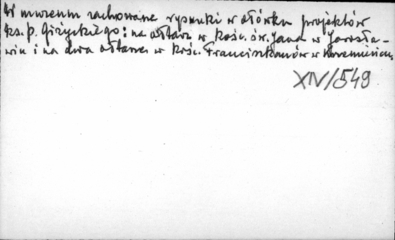 W muzeum zachowane rysunki w ołówku projektów
ks. p. Giżyckiego: na ołtarz w kość. św. Jana w Jarosła-
wiu i na dwa ołtarze w kość. Franciszkanów w Krzemieńcu
XIV/549